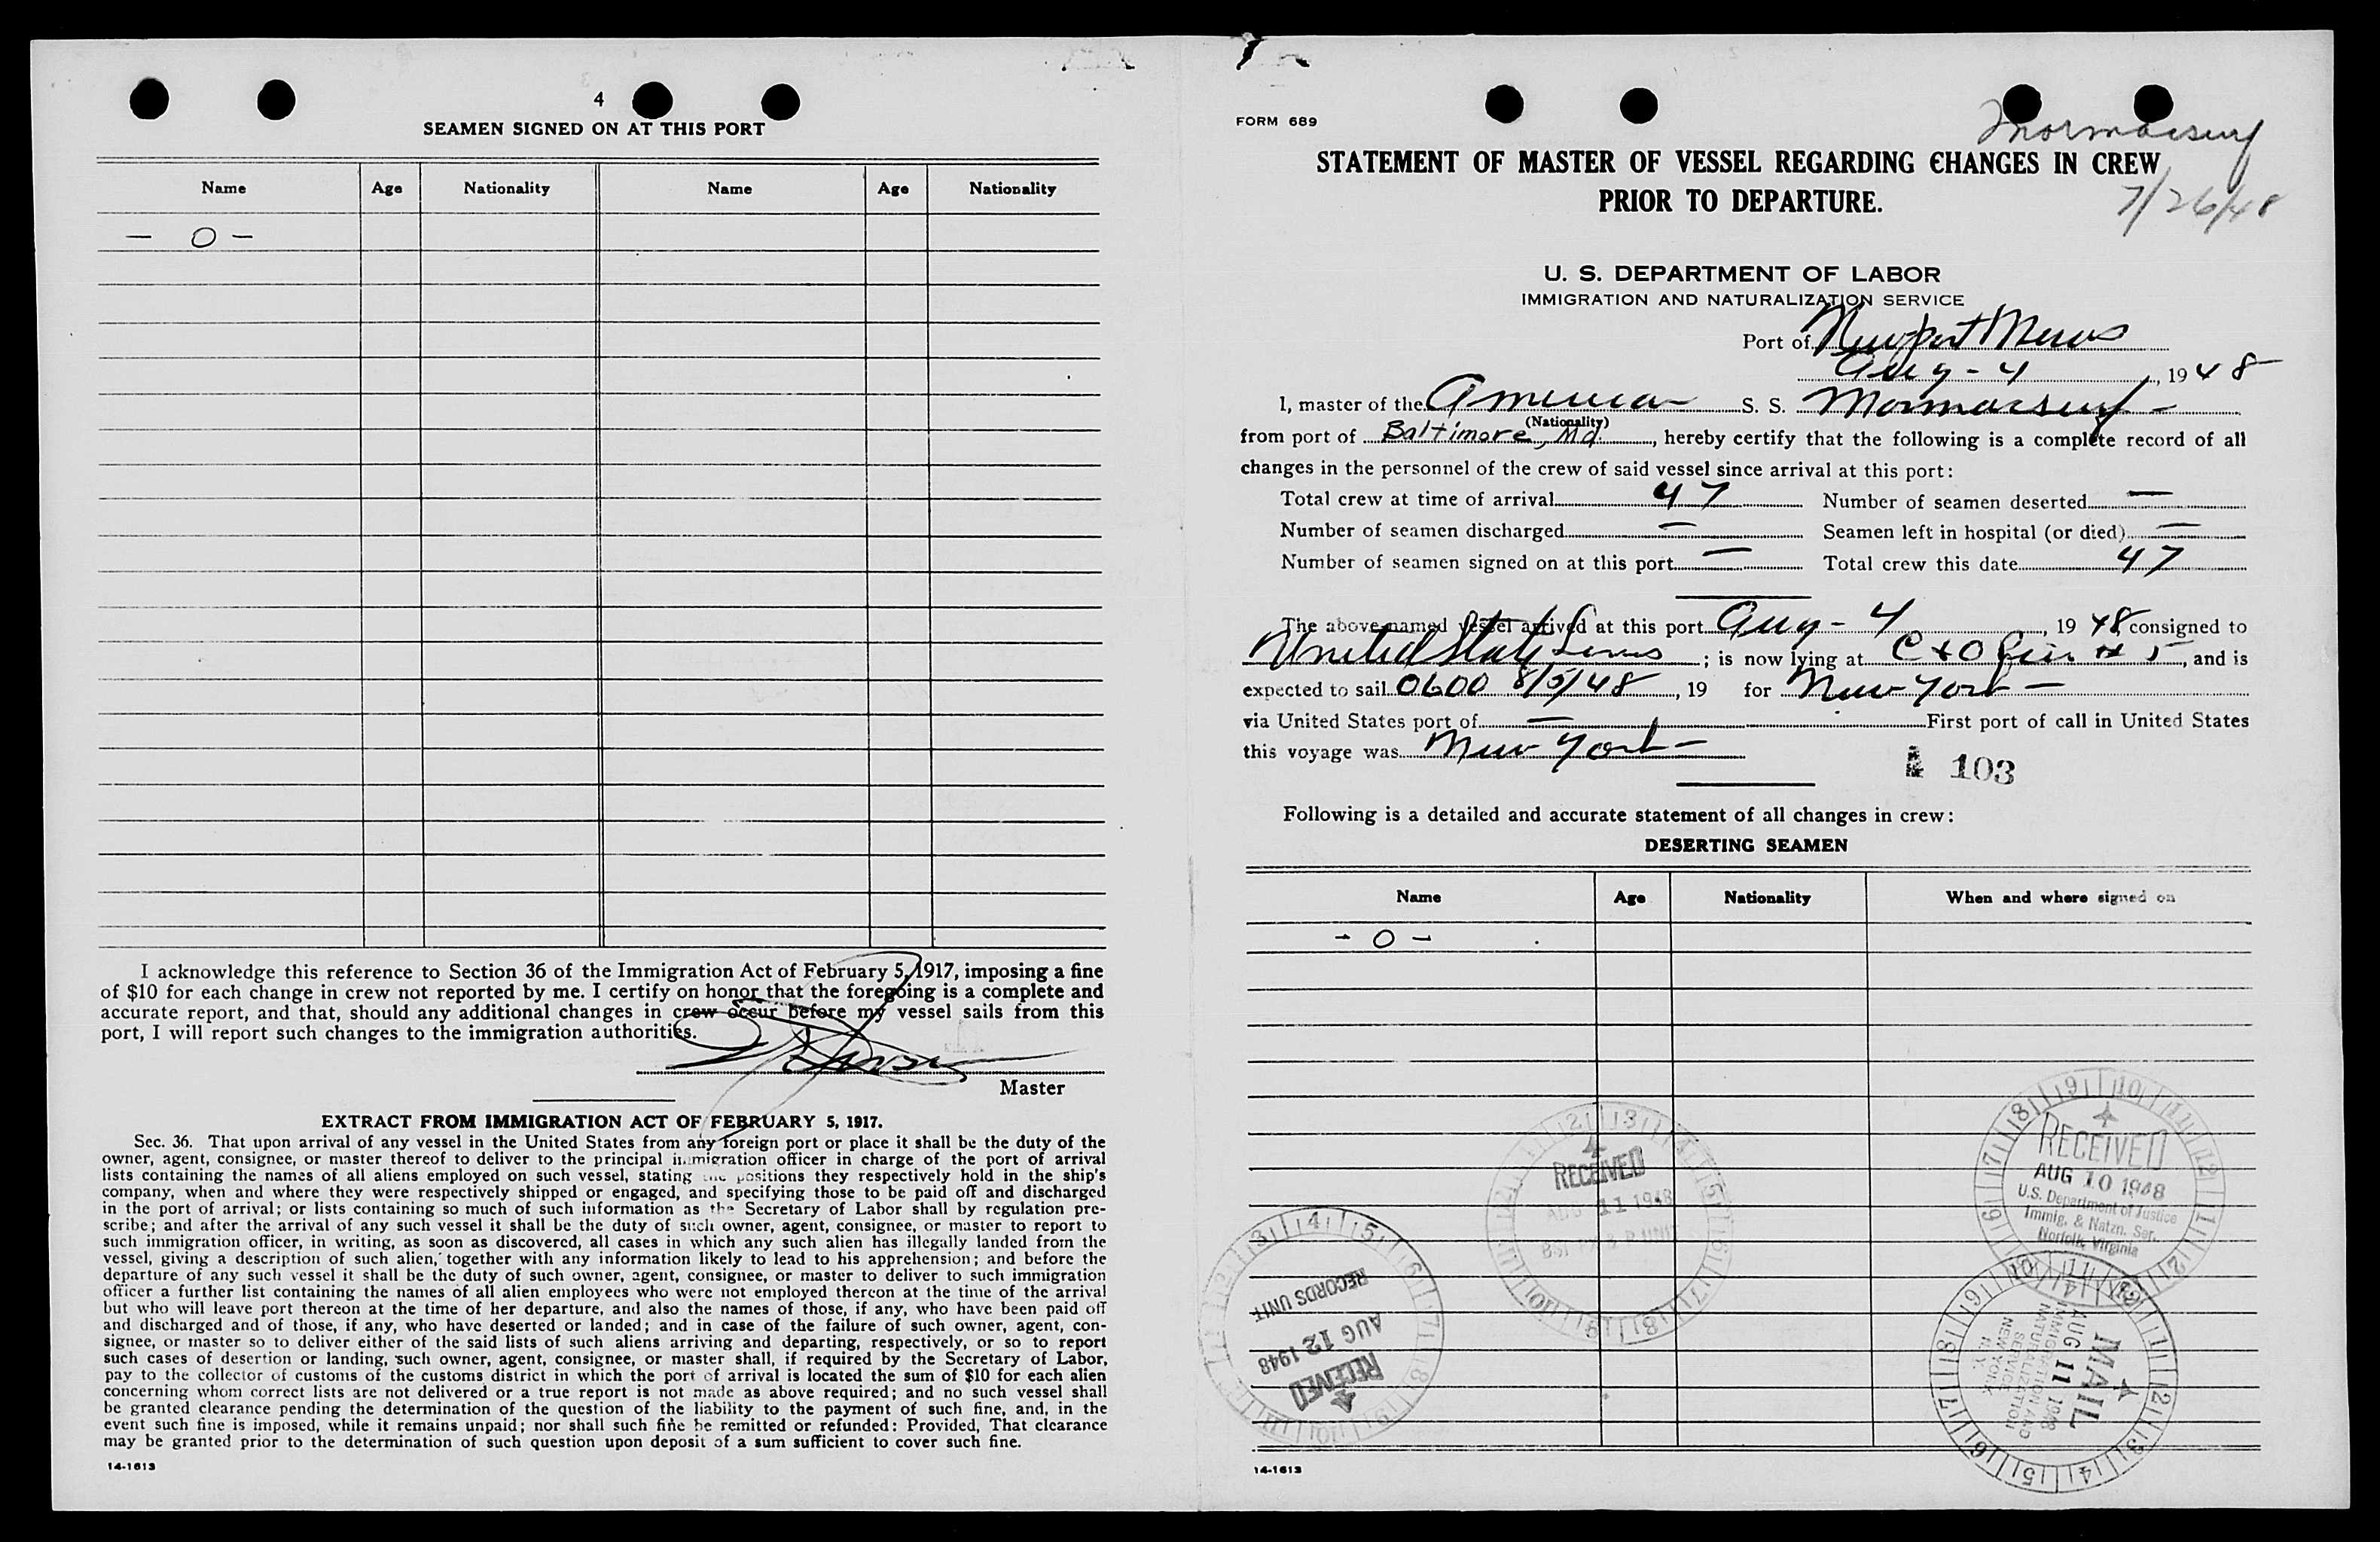 4
SEAMEN SIGNED ON AT THIS PORT
Name Age Nationality Name Age Nationality
— 0 —
I acknowledge this reference to Section 36 of the Immigration Act of February 5, 1917, imposing a fine
of $10 for each change in crew not reported by me. I certify on honor that the foregoing is a complete and
accurate report, and that, should any additional changes in crew occur before my vessel sails from this
port, I will report such changes to the immigration authorities.
Master
EXTRACT FROM IMMIGRATION ACT OF FEBRUARY 5, 1917.
Sec. 36. That upon arrival of any vessel in the United States from any foreign port or place it shall be the duty of the
owner, agent, consignee, or master thereof to deliver to the principal immigration officer in charge of the port of arrival
lists containing the names of all aliens employed on such vessel, stating the positions they respectively hold in the ship's
company, when and where they were respectively shipped or engaged, and specifying those to be paid off and discharged
in the port of arrival; or lists containing so much of such information as the Secretary of Labor shall by regulation pre-
scribe; and after the arrival of any such vessel it shall be the duty of such owner, agent, consignee, or master to report to
such immigration officer, in writing, as soon as discovered, all cases in which any such alien has illegally landed from the
vessel, giving a description of such alien, together with any information likely to lead to his apprehension; and before the
departure of any such vessel it shall be the duty of such owner, agent, consignee, or master to deliver to such immigration
officer a further list containing the names of all alien employees who were not employed thereon at the time of the arrival
but who will leave port thereon at the time of her departure, and also the names of those, if any, who have been paid off
and discharged and of those, if any, who have deserted or landed; and in case of the failure of such owner, agent, con-
signee, or master so to deliver either of the said lists of such aliens arriving and departing, respectively, or so to report
such cases of desertion or landing, such owner, agent, consignee, or master shall, if required by the Secretary of Labor,
pay to the collector of customs of the customs district in which the port of arrival is located the sum of $10 for each alien
concerning whom correct lists are not delivered or a true report is not made as above required; and no such vessel shall
be granted clearance pending the determination of the question of the liability to the payment of such fine, and, in the
event such fine is imposed, while it remains unpaid; nor shall such fine be remitted or refunded: Provided, That clearance
may be granted prior to the determination of such question upon deposit of a sum sufficient to cover such fine.
14-1613
FORM 689
Mormacsurf
STATEMENT OF MASTER OF VESSEL REGARDING CHANGES IN CREW
PRIOR TO DEPARTURE.
7/26/48
U. S. DEPARTMENT OF LABOR
IMMIGRATION AND NATURALIZATION SERVICE
Port of Newport News
Aug - 4, 1948
I, master of the American S. S. Mormacsurf -
(Nationality)
from port of Baltimore, Md., hereby certify that the following is a complete record of all
changes in the personnel of the crew of said vessel since arrival at this port:
Total crew at time of arrival 47 Number of seamen deserted —
Number of seamen discharged — Seamen left in hospital (or died) —
Number of seamen signed on at this port — Total crew this date 47
The above-named vessel arrived at this port Aug - 4, 1948 consigned to
United States Lines; is now lying at C & O Pier # 5, and is
expected to sail 0600 8/5/48, 19 for New York —
via United States port of — First port of call in United States
this voyage was New York —
103
Following is a detailed and accurate statement of all changes in crew:
DESERTING SEAMEN
Name Age Nationality When and where signed on
- 0 -
RECEIVED
AUG 10 1948
U.S. Department of Justice
Immig. & Natzn. Ser.
Norfolk, Virginia
RECEIVED
AUG 11 1948
RECEIVED
AUG 12 1948
RECORDS UNIT
MAIL
AUG 11 1948
IMMIGRATION AND
NATURALIZATION
SERVICE
NEW YORK
N. Y.
14-1613